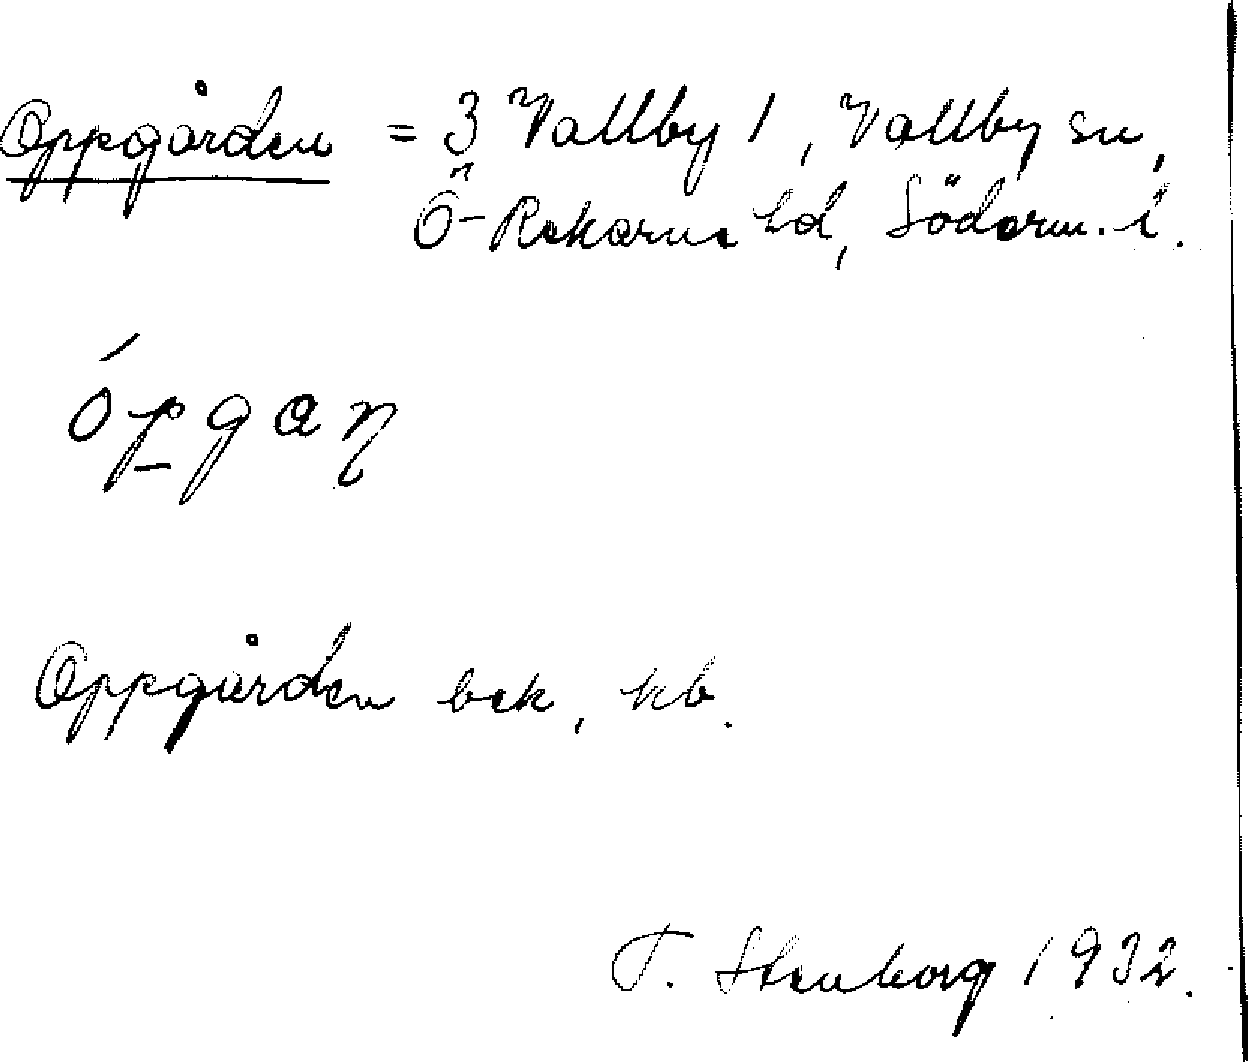 Oppgården = 3 Vallby 1, Vallby sn,
Ö-Rekarne hd, Söderm. l.
ópgaɳ
Oppgården bek, kb.
T. Stenborg 1932.